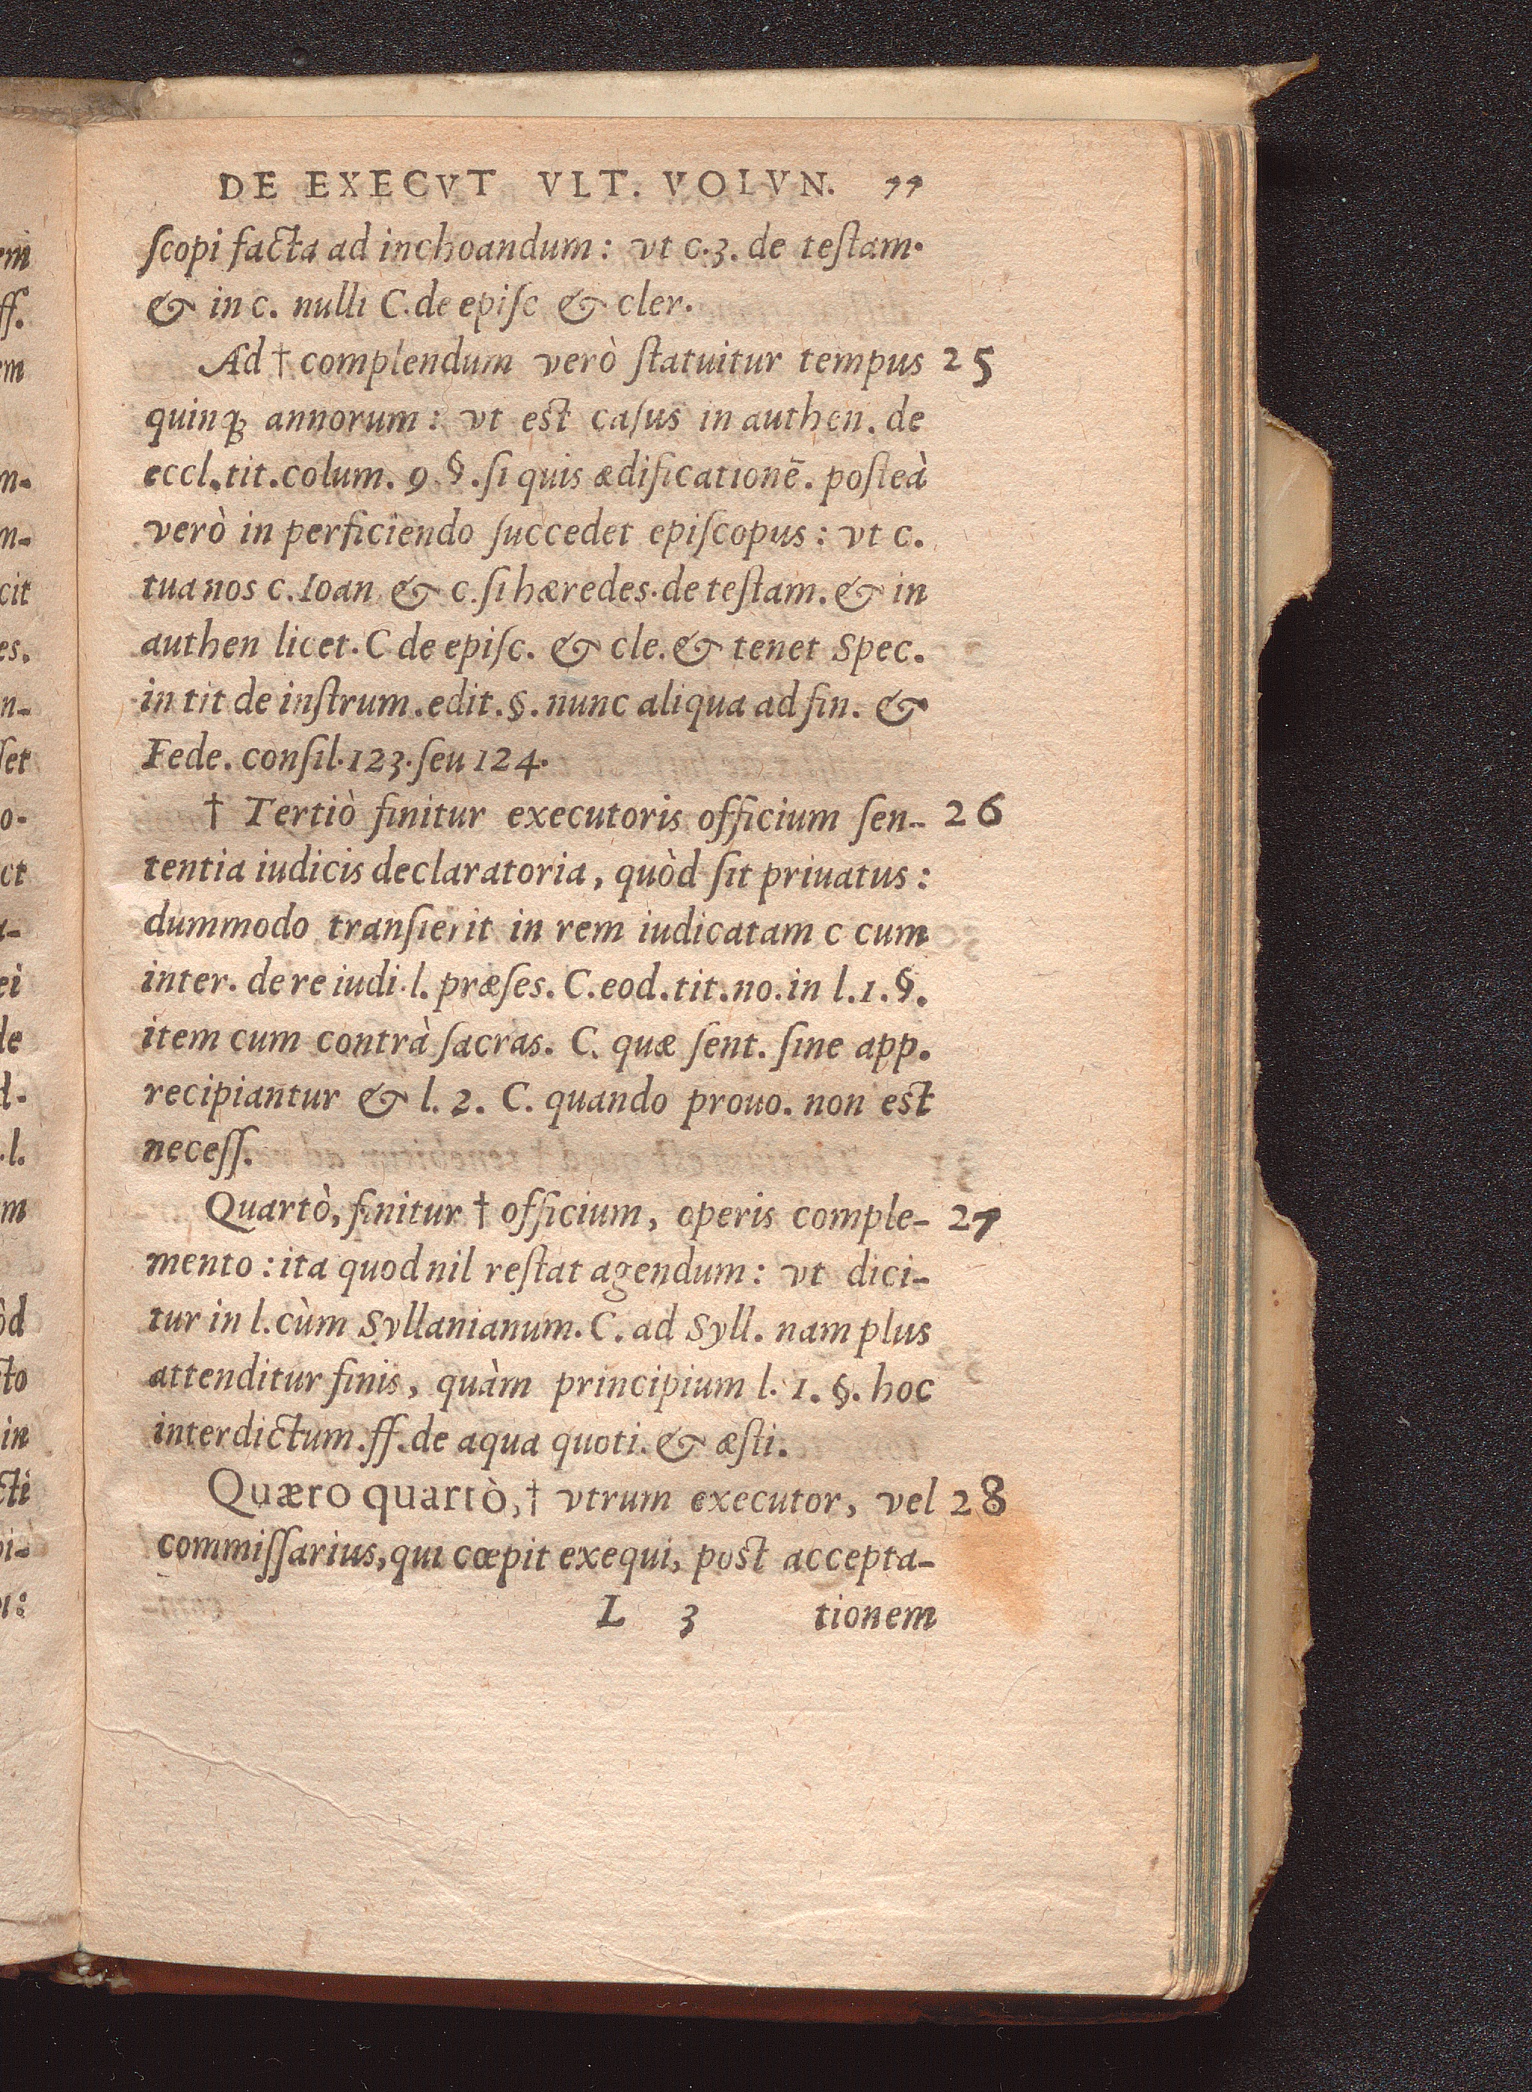 DE EXECVT VLT. VOLVN. 77
ſcopi facta ad inchoandum: vt c.3. de teſtam.
& in c. nulli C. de epiſc & cler.
Ad † complendum verò ſtatuitur tempus 25
quinq; annorum: vt est caſus in authen. de
eccl. tit. colum. 9. §. ſi quis ædificationē. poſteà
verò in perficiendo ſuccedet epiſcopus: vt c.
tua nos c. Ioan & c. ſi hæredes. de teſtam. & in
authen licet. C de epiſc. & cle. & tenet Spec.
in tit de inſtrum. edit. §. nunc aliqua ad fin. &
Fede. conſil. 123. ſeu 124.
† Tertiò finitur executoris officium ſen- 26
tentia iudicis declaratoria, quòd ſit priuatus:
dummodo tranſierit in rem iudicatam c cum
inter. de re iudi. l. præſes. C. eod. tit. no. in l. 1. §.
item cum contrà ſacras. C. quæ ſent. ſine app.
recipiantur & l. 2. C. quando prouo. non est
neceſſ.
Quartò, finitur † officium, operis comple- 27
mento: ita quod nil reſtat agendum: vt dici-
tur in l. cùm Syllanianum. C. ad Syll. nam plus
attenditur finis, quàm principium l. 1. §. hoc
interdictum. ff. de aqua quoti. & æſti.
Quæro quartò, † vtrum executor, vel 28
commiſſarius, qui cœpit exequi, post accepta-
L 3 tionem